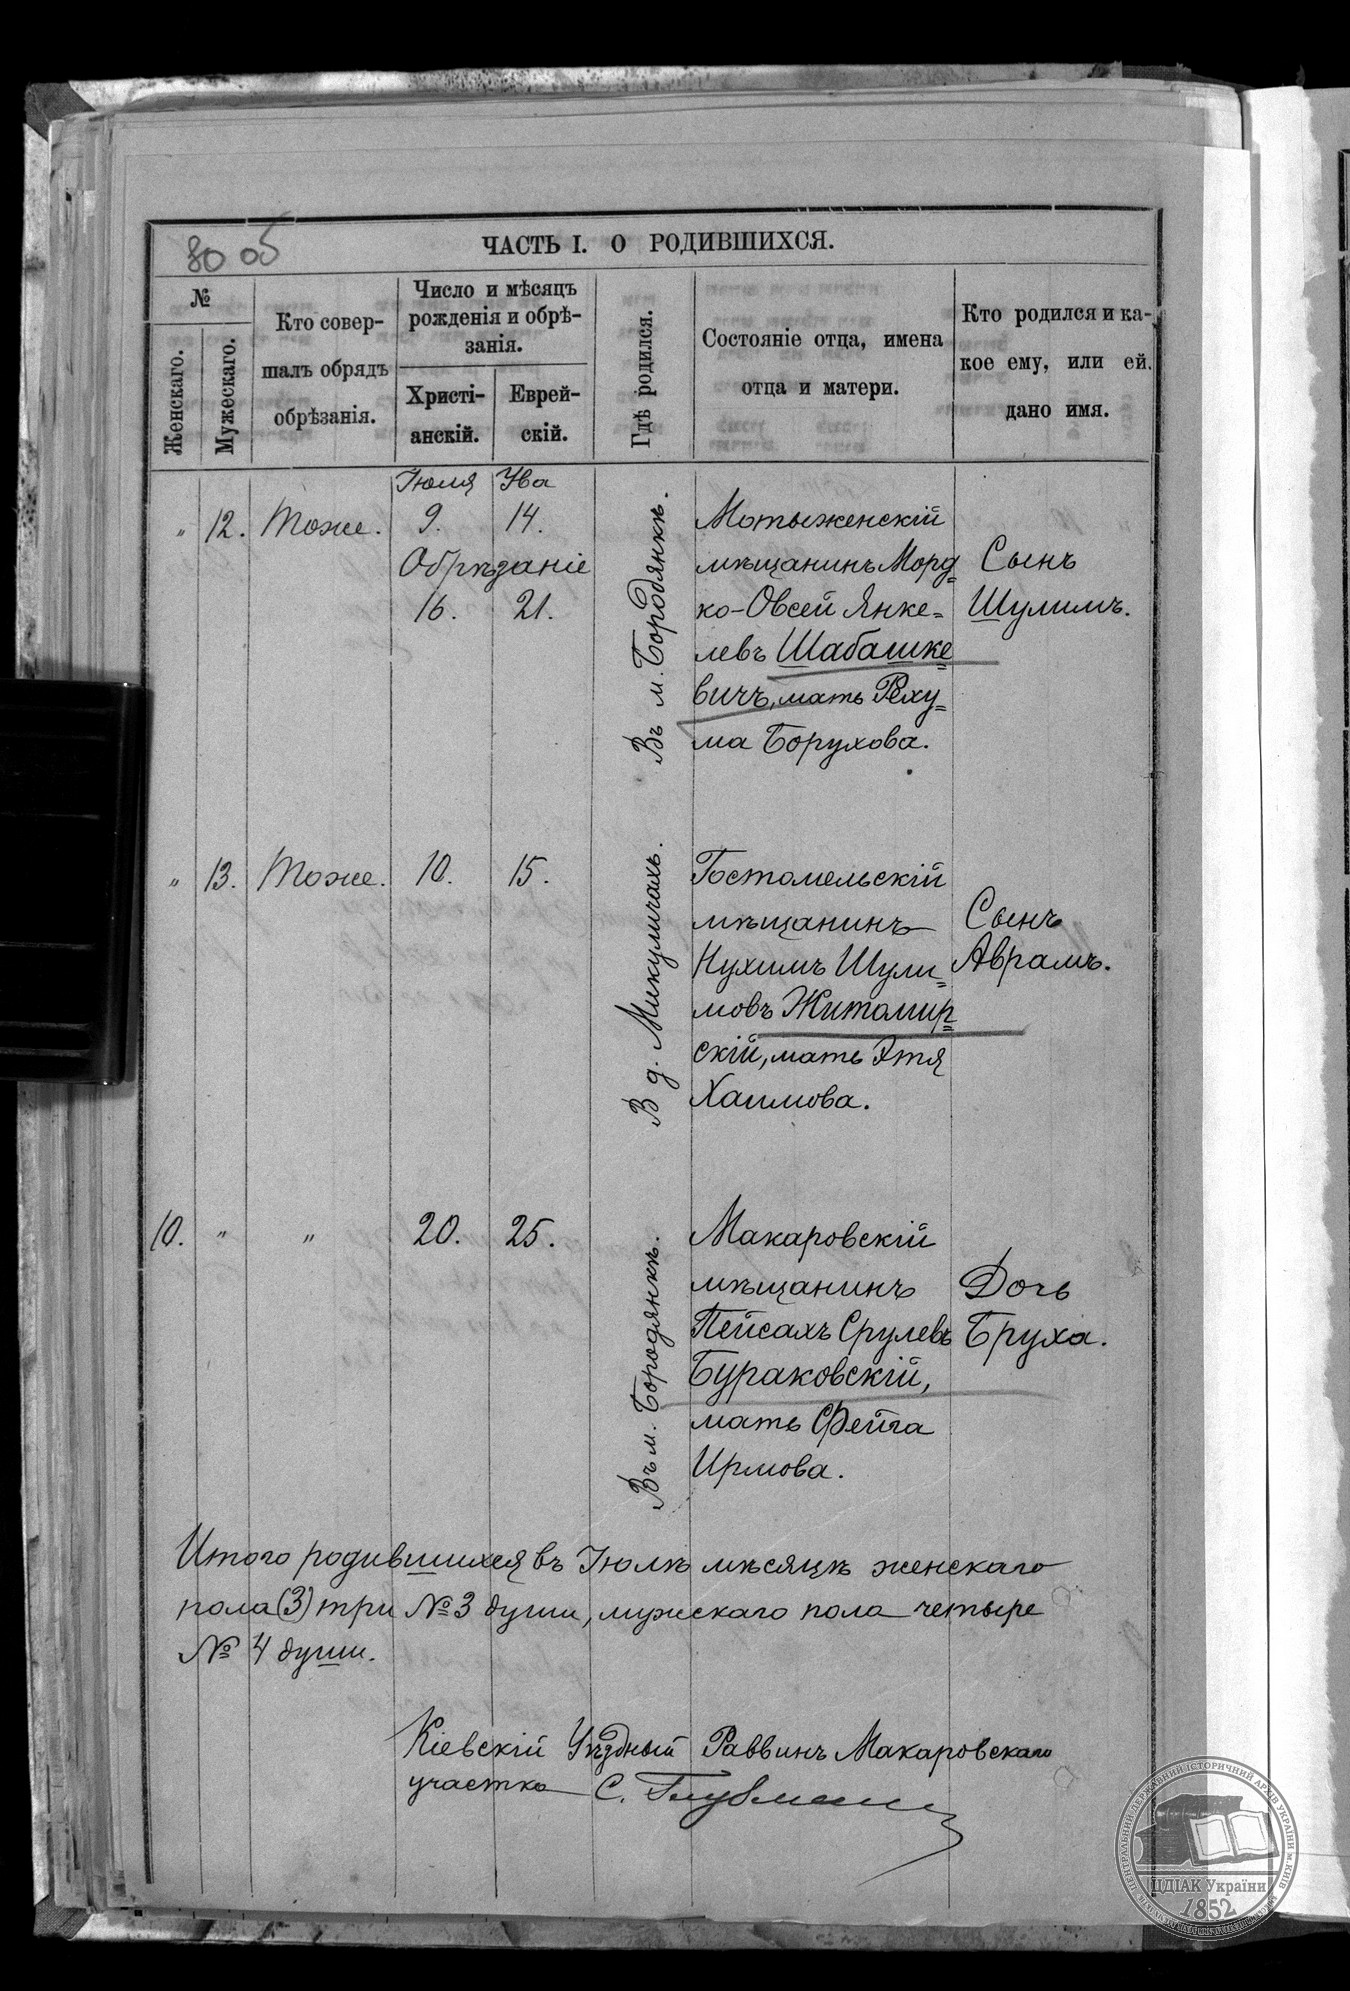 80 об
ЧАСТЬ I. О РОДИВШИХСЯ.
№
Женскаго.
Мужескаго.
Кто совер-
шалъ обрядъ
обрѣзанія.
Число и мѣсяцъ
рожденія и обрѣ-
занія.
Христі-
анскій.
Еврей-
скій.
Гдѣ родился.
Состояніе отца, имена
отца и матери.
Кто родился и ка-
кое ему, или ей.
дано имя.
Іюля Ува
" 12. Тоже. 9. 14.
Обрѣзаніе
16. 21.
Въ м. Бородянкѣ.
Мотыженскій
мѣщанинъ Морд=
ко-Овсей Янке=
левъ Шабашке=
вичъ, мать Реху=
ма Борухова.
Сынъ
Шулимъ.
" 13. Тоже. 10. 15.
В д. Микуличахъ.
Гостомельскій
мѣщанинъ
Нухимъ Шули=
мовъ Житомир=
скій, мать Этя
Хаимова.
Сынъ
Аврамъ.
10. " " 20. 25.
Въ м. Бородянкѣ.
Макаровскій
мѣщанинъ
Пейсахъ Срулевъ
Бураковскій,
мать Фейга
Ирмова.
Дочь
Бруха.
Итого родившихся въ Іюлѣ мѣсяцѣ женскаго
пола (3) три № 3 души, мужскаго пола четыре
№ 4 души.
Кіевскій Уѣздный Раввинъ Макаровскаго
участка С.
ЦЕНТРАЛЬНИЙ ДЕРЖАВНИЙ ІСТОРИЧНИЙ АРХІВ УКРАЇНИ М. КИЇВ
ЦДІАК України
1852